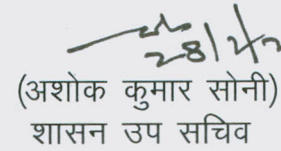 28/2/
(अशोक कुमार सोनी)
शासन उप सचिव